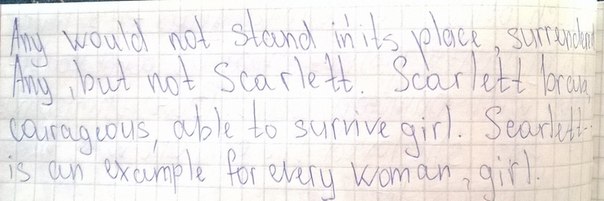 Any would not stand in its place, surrended
Any, but not Scarlett. Scarlett brave,
courageous, able to survive girl. Scarlett-
is an example for every woman, girl.